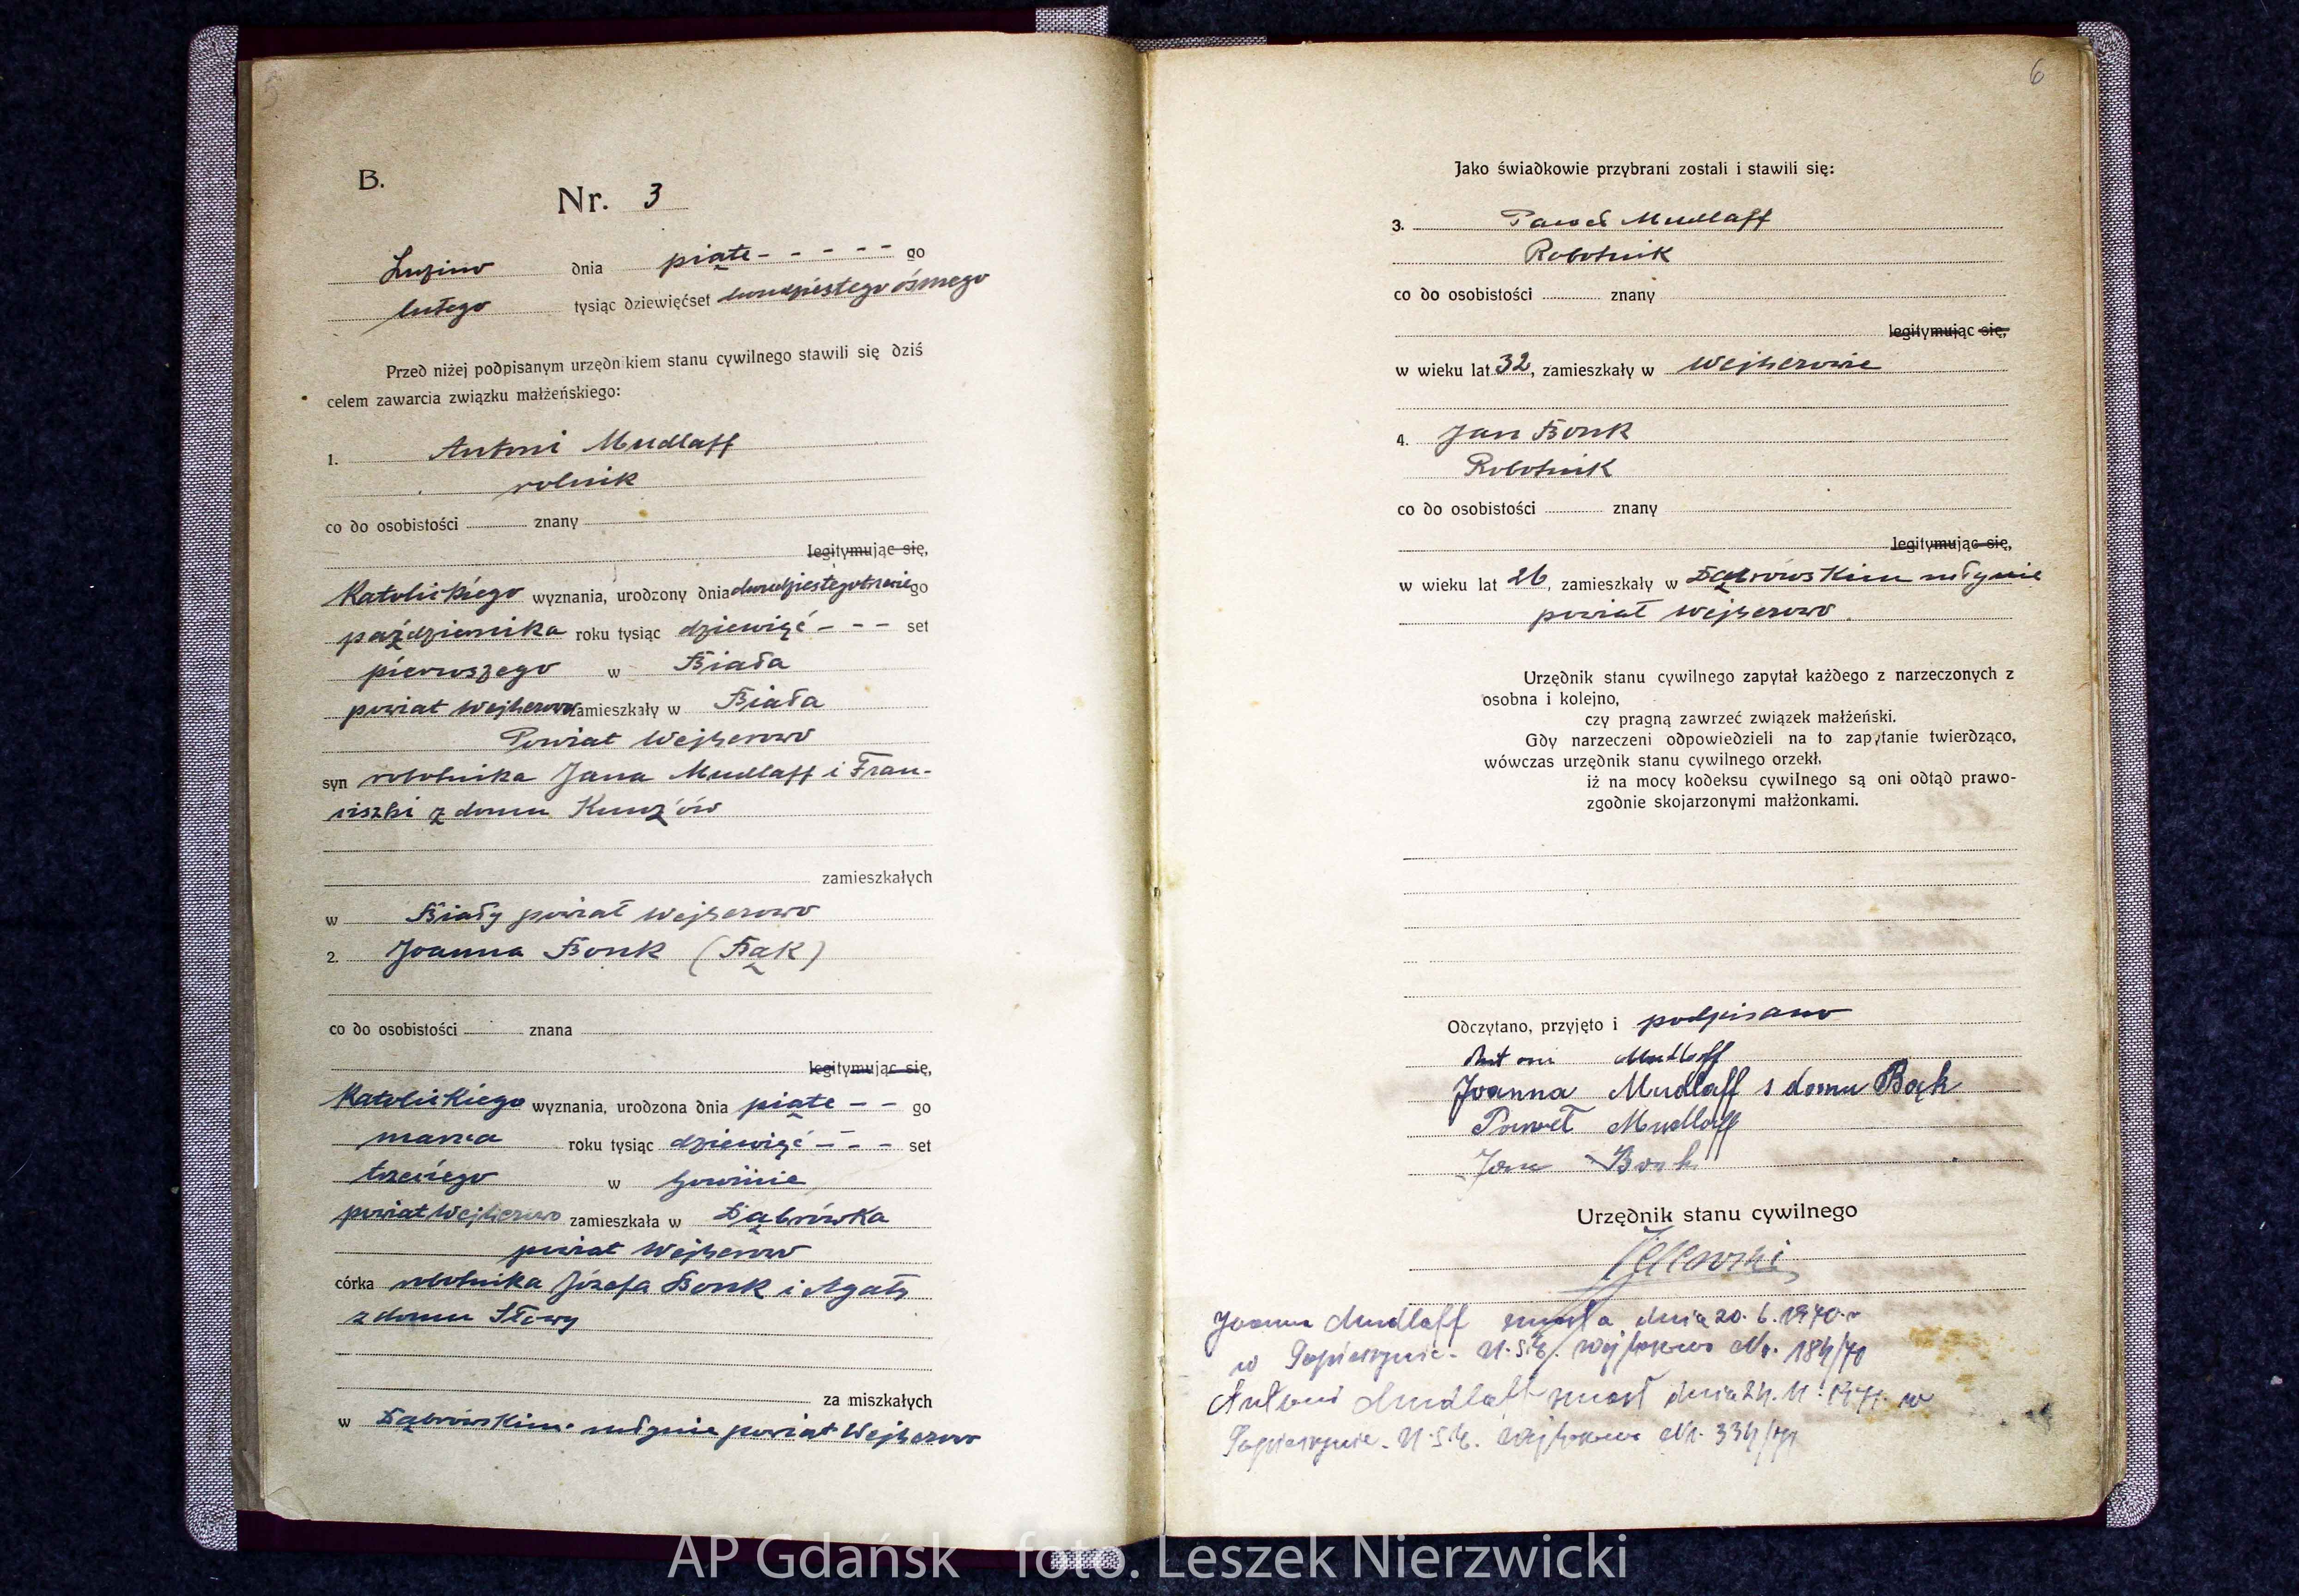 B.
Nr. 3
Luzino dnia piąte - - - - - go
lutego tysiąc dziewięćset dwudziestego ósmego
Przed niżej podpisanym urzędnikiem stanu cywilnego stawili się dziś
celem zawarcia związku małżeńskiego:
1. Antoni Mudlaff
rolnik
co do osobistości znany
legitymując się,
Katolickiego wyznania, urodzony dnia dwudziestegotrzeciego
października roku tysiąc dziewięć - - - set
pierwszego w Biała
powiat Wejherowo zamieszkały w Biała
Powiat Wejherowo
syn robotnika Jana Mudlaff i Fran-
ciszki z domu
zamieszkałych
w Biały powiat Wejherowo
2. Joanna Bonk (Bąk)
co do osobistości znana
legitymując się,
Katolickiego wyznania, urodzona dnia piąte - - go
marca roku tysiąc dziewięć - - - set
trzeciego w Gowinie
powiat Wejherowo zamieszkała w Dąbrówka
powiat Wejherowo
córka robotnika Józefa Bonk i Agaty
z domu Słowy
za miszkałych
w Dąbrowskim młynie powiat Wejherowo
6
Jako świadkowie przybrani zostali i stawili się:
3. Paweł Mudlaff
Robotnik
co do osobistości znany
legitymując się,
w wieku lat 32, zamieszkały w Wejherowie
4. Jan Bonk
Robotnik
co do osobistości znany
legitymując się,
w wieku lat 26, zamieszkały w Dąbrowskim młynie
powiat Wejherowo.
Urzędnik stanu cywilnego zapytał każdego z narzeczonych z
osobna i kolejno,
czy pragną zawrzeć związek małżeński.
Gdy narzeczeni odpowiedzieli na to zapytanie twierdząco,
wówczas urzędnik stanu cywilnego orzekł,
iż na mocy kodeksu cywilnego są oni odtąd prawo-
zgodnie skojarzonymi małżonkami.
Odczytano, przyjęto i podpisano
Antoni Mudlaff
Joanna Mudlaff s domu Bąk
Paweł Mudlaff
Jan Bonk
Urzędnik stanu cywilnego
Joanna Mudlaff zmarła dnia 20. 6. 1970 r
w U.S.C. Wejherowo Nr. 184/70
Antoni Mudlaff zmarł dnia 24. 11. 1971. w
U.S.C. Wejherowo Nr. 334/71
AP Gdańsk foto. Leszek Nierzwicki